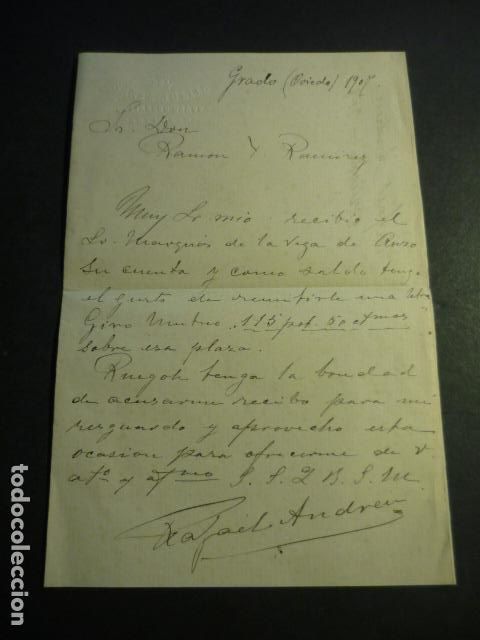 Grado (Oviedo) 1907.
Sr. Don
Ramon Y Ramirez
Muy Sr mio recibió el
Sr. Marqués de la Vega de Anzo
su cuenta y como saldo tengo
el gusto de remitirle una
Giro Mutuo 115 pst. 50
sobre esa plaza.
Ruegole tenga la bondad
de acusarme recibo para mi
resguardo y aprovecho esta
ocasion para ofrecerme de V.
afo y afmo S. S. Q. B. S. M.
Rafael Andreu
todocoleccion
todocoleccion.net